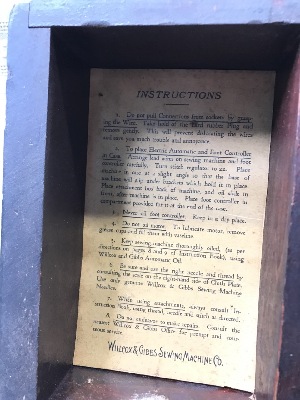 INSTRUCTIONS
1. Do not pull Connection from sockets by grasp-
ing the Wire. Take hold of the hard rubber Plug and
remove gently. This will prevent dislocating the wires
and save you much trouble and annoyance.
2. To place Electric Automatic and Foot Controller
in Case. Arrange lead wires on sewing machine and foot
controller carefully. Turn stitch regulator to 20. Place
machine in case at a slight angle so that the base of
machine will slip under brackets which hold it in place.
Place attachment box back of machine, and oil stick in
front, after machine is in place. Place foot controller in
compartment provided for it at the end of the case.
3. Never oil foot controller. Keep in a dry place.
4. Do not oil motor. To lubricate motor, remove
grease cups and fill same with vaseline.
5. Keep sewing machine thoroughly oiled, (as per
directions on pages 8 and 9 of Instruction Book), using
Willcox and Gibbs Automatic Oil.
6. Be sure and use the right needle and thread by
consulting the scale on the right-hand side of Cloth Plate.
Use only genuine Willcox & Gibbs Sewing Machine
Needles.
7. When using attachments, always consult In-
struction Book, using thread, needle and stitch as directed.
8. Do not endeavor to make repairs. Consult the
nearest Willcox & Gibbs Office for prompt and cour-
teous service.
WILLCOX & GIBBS SEWING MACHINE CO.